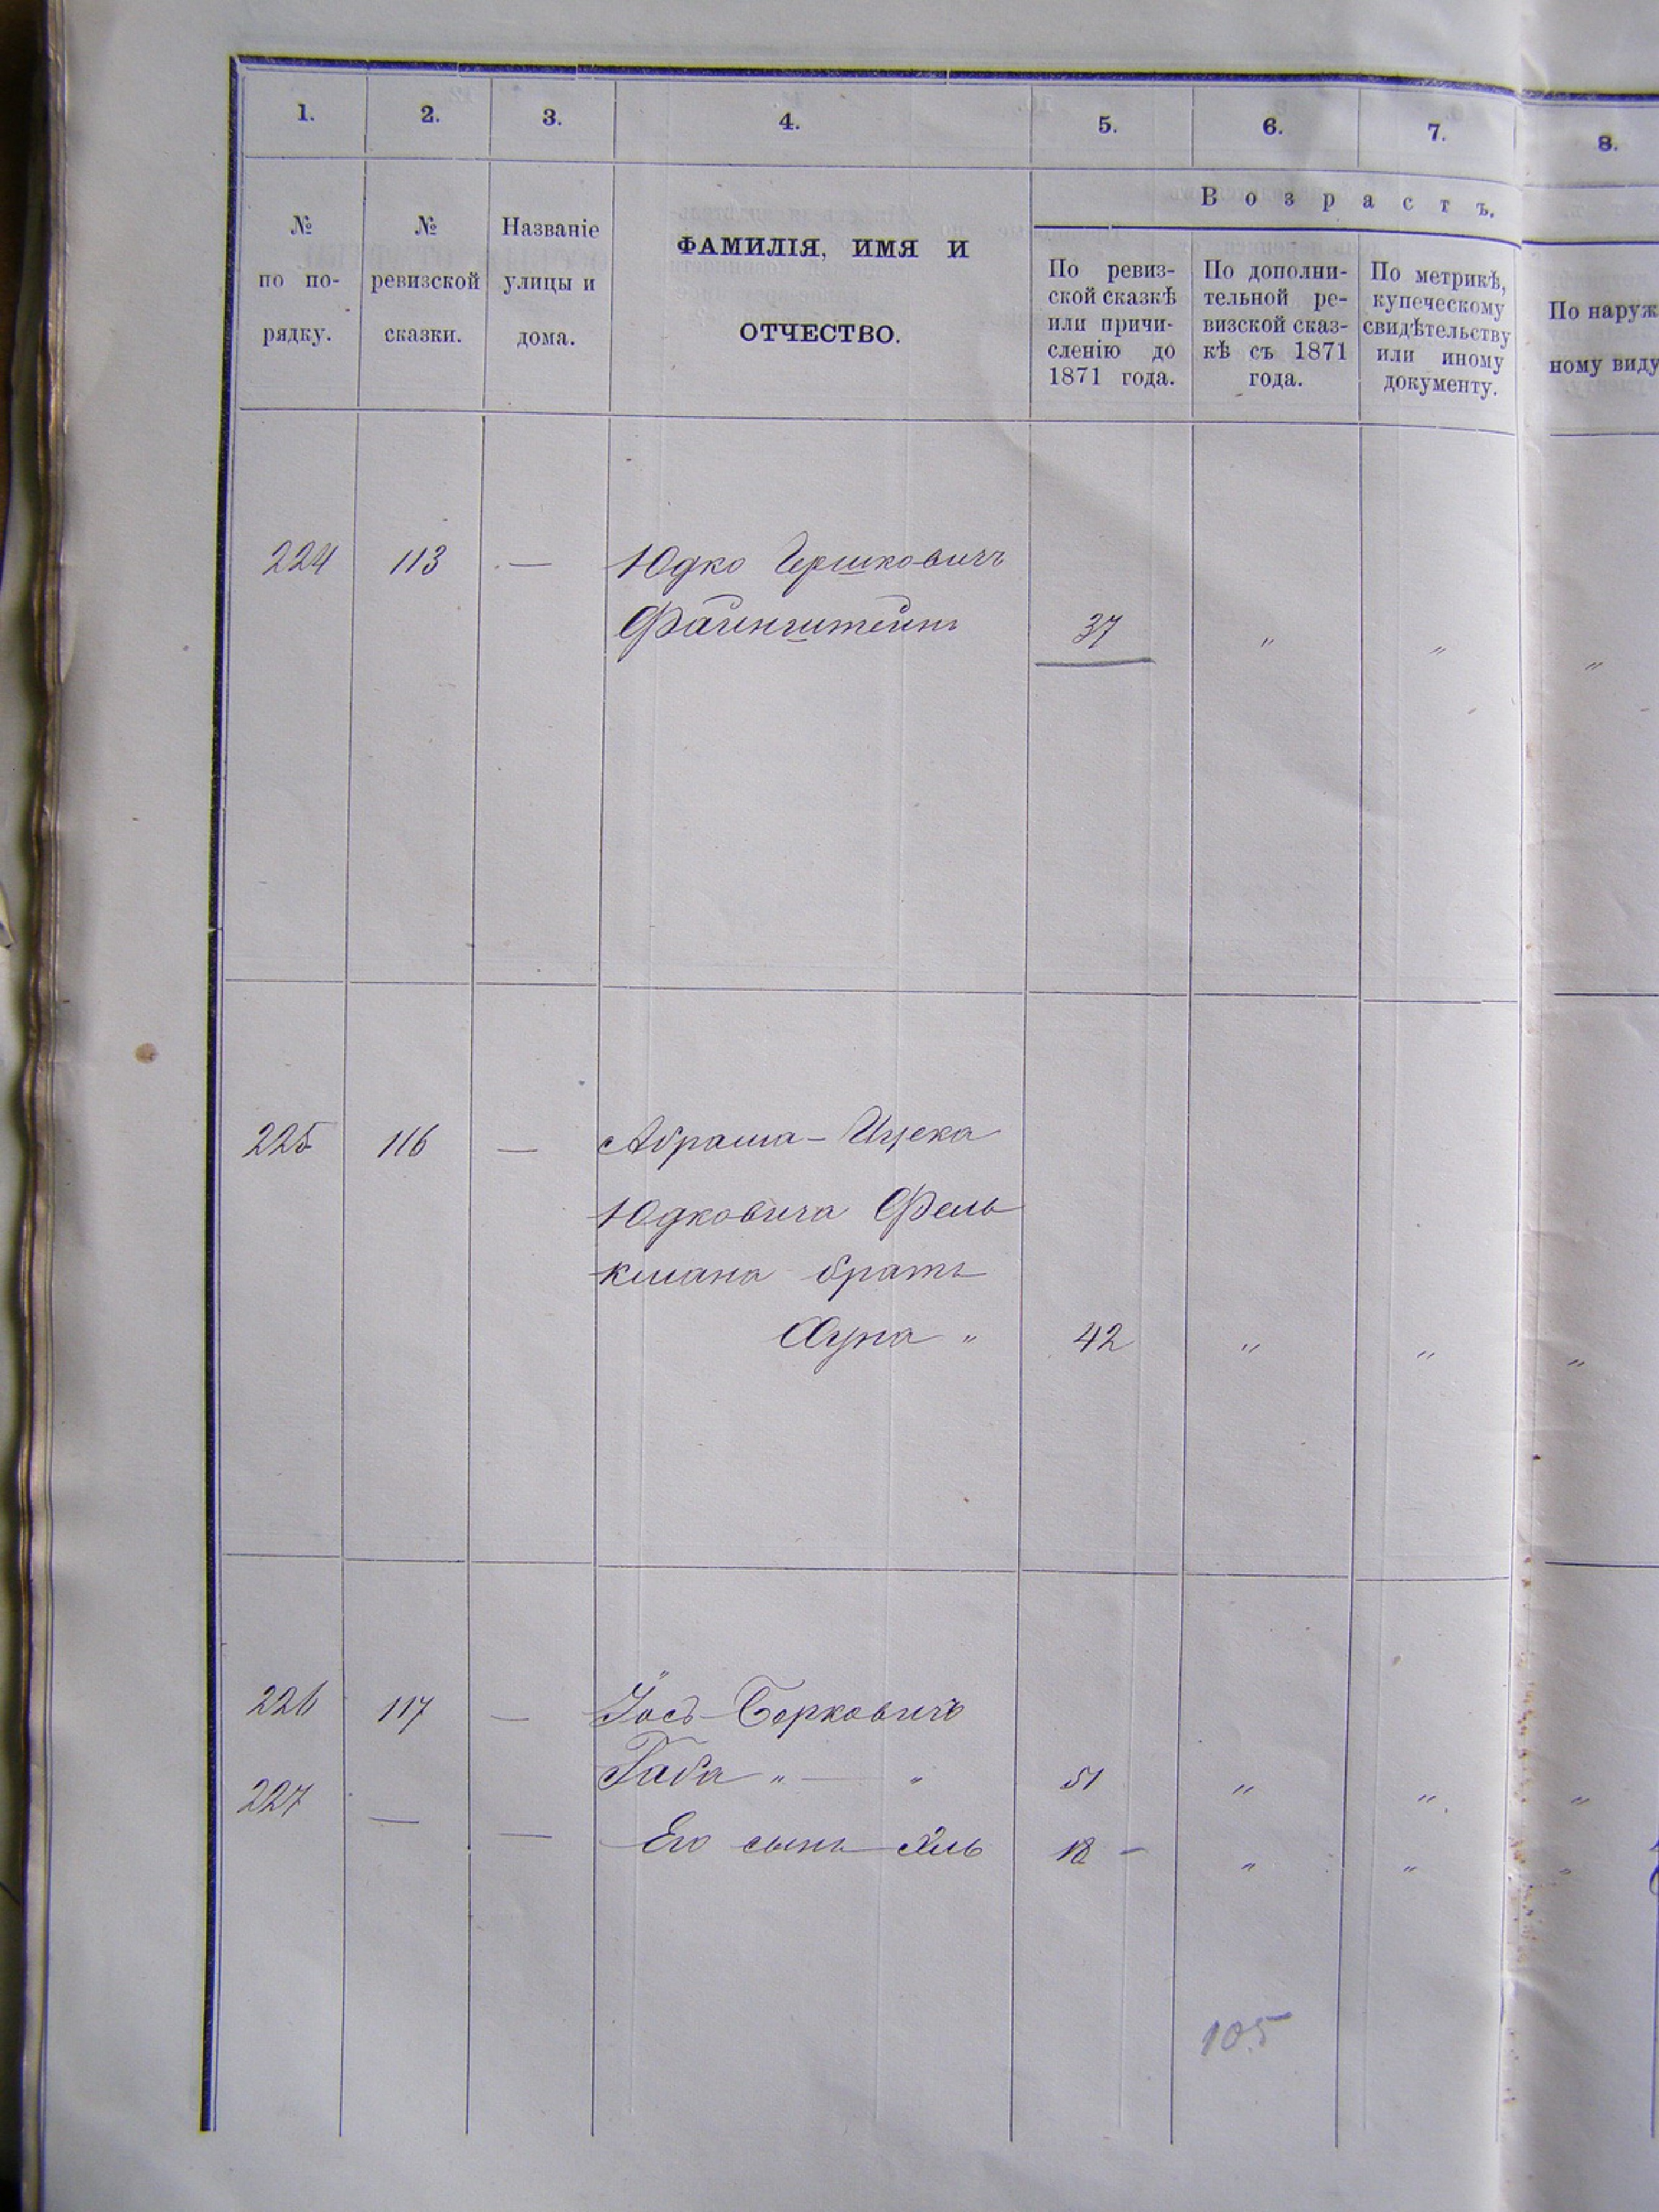 1. 2. 3. 4. 5. 6. 7. 8.
№ по по-рядку.
№ ревизской сказки.
Названіе улицы и дома.
ФАМИЛІЯ, ИМЯ И
ОТЧЕСТВО.
Возрастъ.
По ревиз-
ской сказкѣ
или причи-
сленію до
1871 года.
По дополни-
тельной ре-
визской сказ-
кѣ съ 1871
года.
По метрикѣ,
купеческому
свидѣтельству
или иному
документу.
По наруж
ному виду
224 113 — Юдко Гершковичъ
Файнштейнъ 37 " " "
225 116 — Абрама-Ицека
Юдковича Фель
кмана братъ
Хуна " 42 " " "
226 117 — Іосъ Берковичъ
Габа " — " 51 " " "
227 — — Его сынъ Эль 18 — " " "
105